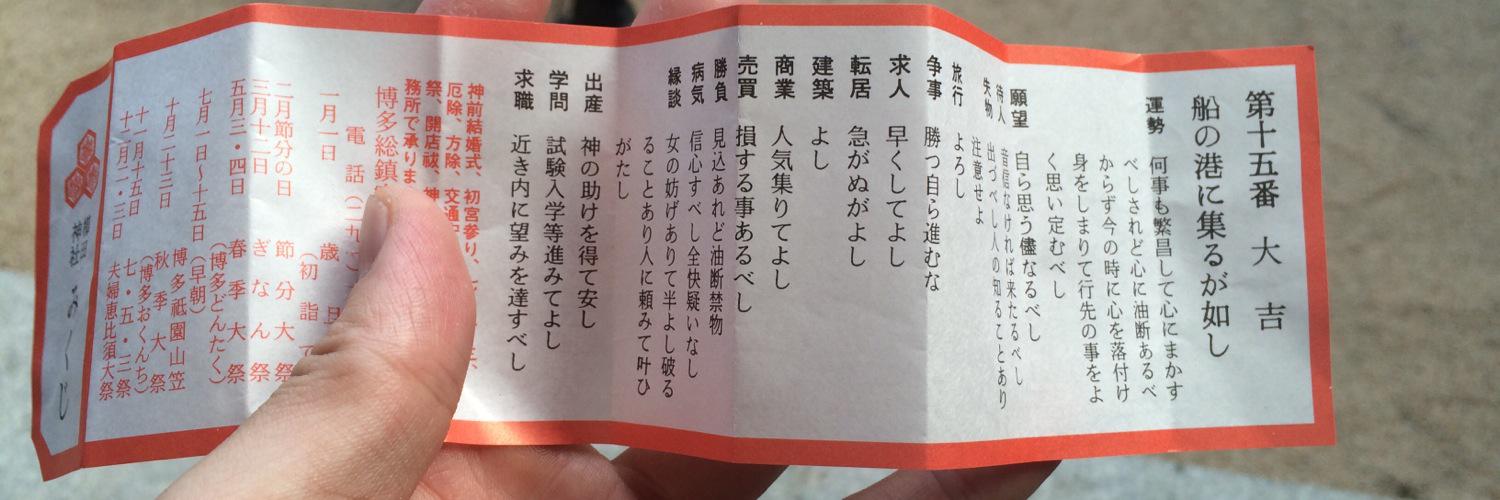 第十五番 大吉
船の港に集るが如し
運勢 何事も繁昌して心にまかす
べしされど心に油断あるべ
からず今の時に心を落付け
身をしまりて行先の事をよ
く思い定むべし
願望 自ら思う儘なるべし
待人 音信なければ来たるべし
失物 出づべし人の知ることあり
注意せよ
旅行 よろし
争事 勝つ自ら進むな
求人 早くしてよし
転居 急がぬがよし
建築 よし
商業 人気集りてよし
売買 損する事あるべし
勝負 見込あれど油断禁物
病気 信心すべし全快疑いなし
縁談 女の妨げありて半よし破る
ることあり人に頼みて叶ひ
がたし
出産 神の助けを得て安し
学問 試験入学等進みてよし
求職 近き内に望みを達すべし
神前結婚式、初宮参り、
厄除、方除、交通
祭、開店祓、神
務所で承りま
博多総鎮
電話（二九
一月一日 歳旦
（初詣で
二月節分の日 節分大祭
三月十二日 ぎなん祭
五月三・四日 春季大祭
（博多どんたく）
七月一日～十五日（早朝）
博多祇園山笠
十月二十三日 秋季大祭
（博多おくんち）
十一月十五日 七・五・三祭
十二月二・三日 夫婦恵比須大祭
櫛田神社 おみくじ